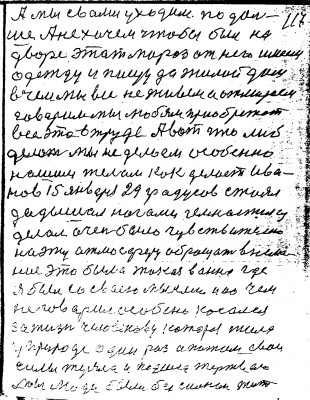 А мы с вами уходим. подаль-
ше А не хочем чтобы был на
дворе этот мороз от него имеем
одежду и пищу да жилой дом
в чем мы все не живем а
говорим мы любим приобретать
все это в труде А вот что люб
делат мы не делаем особенно
нашим телам как делает Ива-
нов 15 января 29 градусов стоял
да дышал ногами
делал очен было чувствително
на эту атмосферу обращат внима-
ние это была такая ванна где
я был со своею мыслию нао чем
не говорил особено косался
за жизнь человекову котора жила
у природе один раз а потом свои
силы теряла и
Люди были без